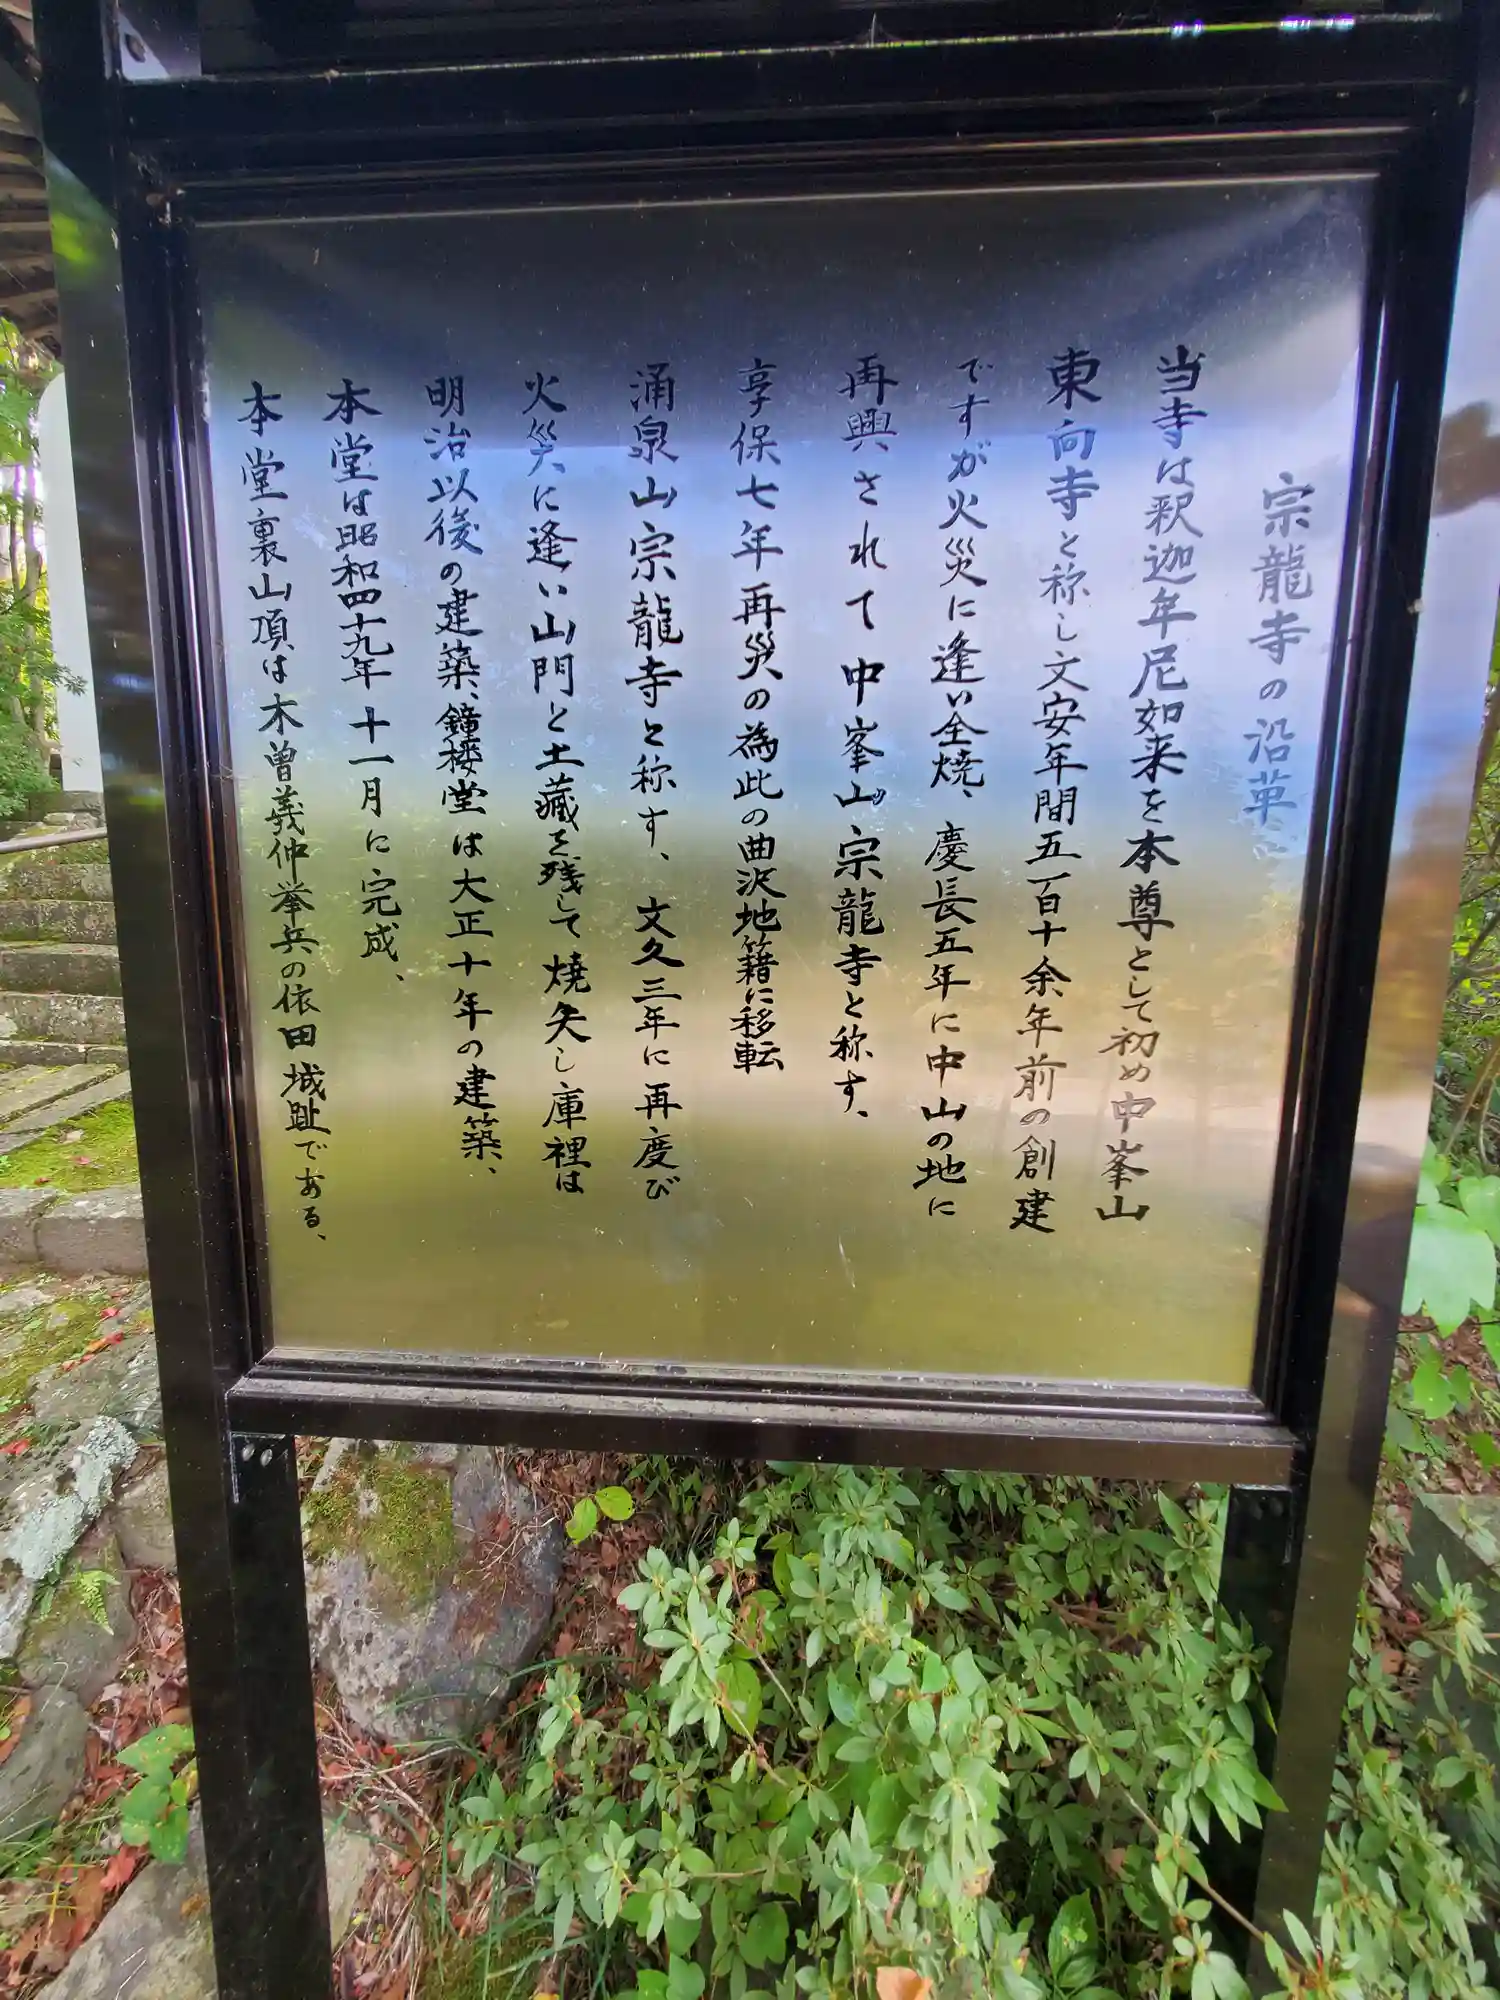 宗龍寺の沿革
当寺は釈迦牟尼如来を本尊として初め中峯山
東向寺と称し文安年間五百十余年前の創建
ですが火災に逢い全焼、慶長五年に中山の地に
再興されて中峯山宗龍寺と称す、
享保七年再災の為此の曲沢地籍に移転
涌泉山宗龍寺と称す、文久三年に再度び
火災に逢い山門と土蔵を残して焼失し庫裡は
明治以後の建築、鐘楼堂は大正十年の建築、
本堂は昭和四十九年十一月に完成、
本堂裏山頂は木曽義仲挙兵の依田城趾である、